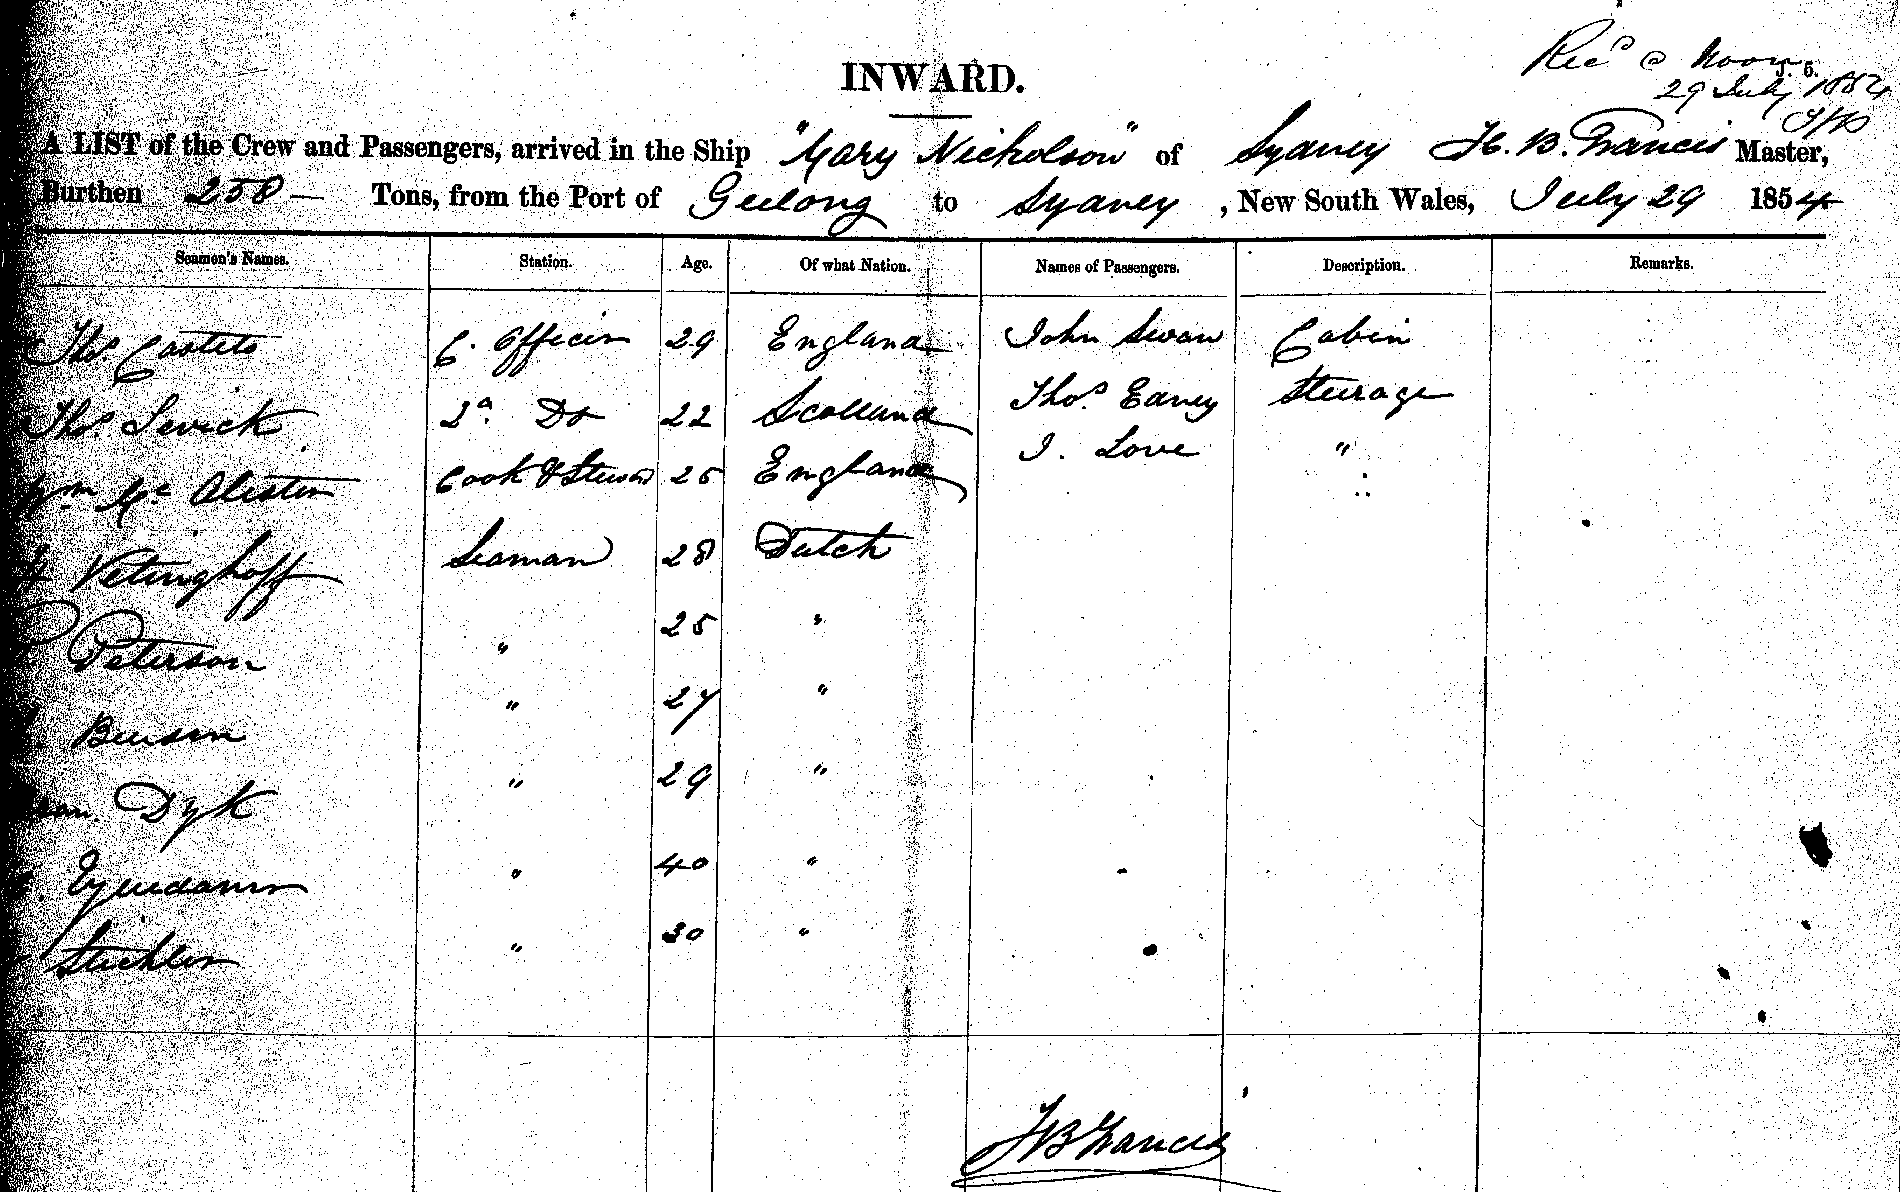 Recd @ Noon
J. 6.
29 July 1854
INWARD.
A LIST of the Crew and Passengers, arrived in the Ship "Mary Nicholson" of Sydney H. B. Francis Master,
Burthen 258 — Tons, from the Port of Geelong to Sydney, New South Wales, July 29 1854
Seamen's Names. Station. Age. Of what Nation. Names of Passengers. Description. Remarks.
Thos. C. Officer 29 England John Swan Cabin
Thos. Levick 2d. Do 22 Scotland Thos. Eaney Steerage
Wm Mc Alester Cook & Steward 25 England J. Love "
Vetinghoff Seaman 28 Dutch
P Peterson " 25 "
Bensen " 27 "
Dyk " 29 "
" 40 "
" 30 "
HB Francis